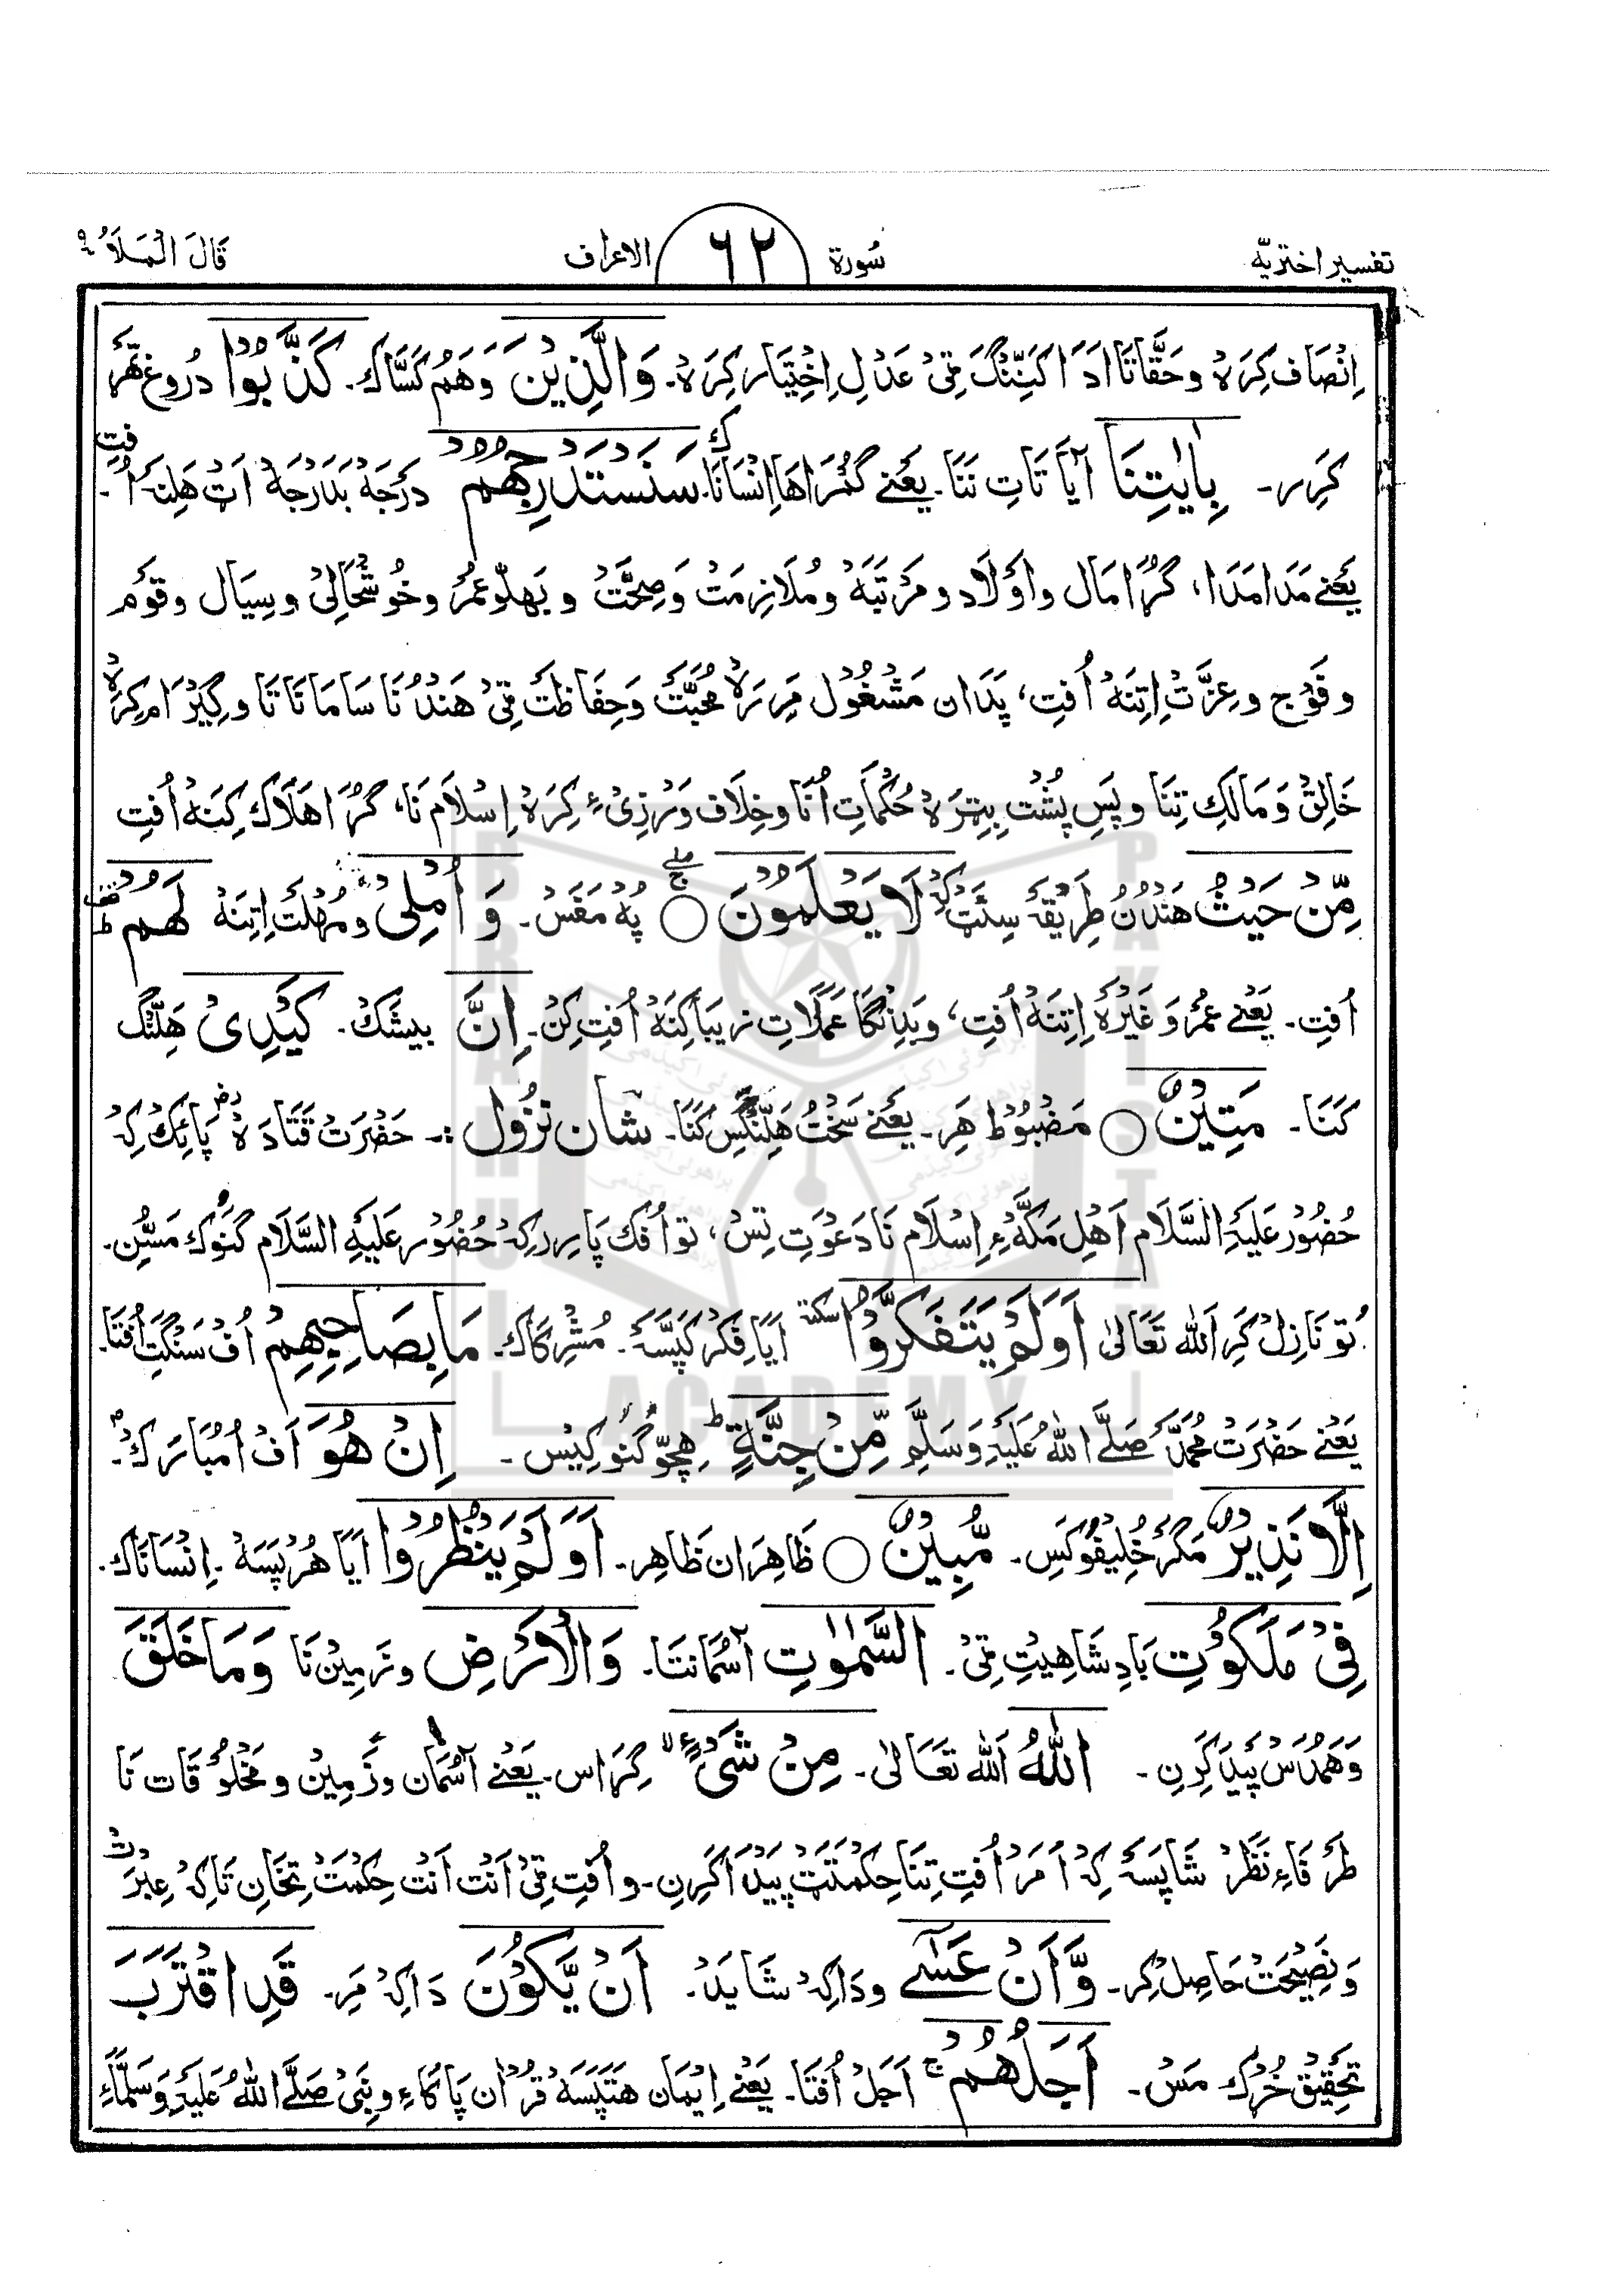 تفسیر اختریّہ سُورۃ ٦٢ الاعراف قَالَ الْمَلَاُ ٩
اِنْصَاف کِرَہْ و حَقَّاتَا اَدَا کَنِّنْگ تِیْ عَدْلِ اِخْتِیَار کِرَہْ۔ وَالَّذِیْنَ وَ هَمُ کَسَّاک۔ کَذَّبُوْا دُروغ تھرَ
کَرِر۔ بِاٰیٰتِنَا آیَا تَاتِ نَنَا۔ یَعْنے گُمْرَاهَا اِنْسَانَاک۔ سَنَسْتَدْرِجُهُمْ دَرْجَہ بَدَرْجَہ اَتْ هَلِنَہ اُفتِ۔
یَعْنے مَدَامَدَا، گُڑَا مَال و اَوْلَاد و مَرْتَبَہ و مُلَازِمَتْ وَصِحَّتْ و بَهلّو عُمُر و خُوشْحَالِیْ و سِیَال و قَوْم
و فَوْج و عِزَّتْ اِتِنَہ اُفتِ، پَدَان مَشْغُوْل مَرِرَہْ مُحَبَّتْ وَحِفَاظَتْ تِیْ هَنْدُنَا سَامَانَاتَا و گِیْرَام کِرَہْ
خَالِقْ وَمَالَکِ تِنَا و پَسِ پُشْت بِیْرَہ حُکْمَاتِ اُنَا و خِلَاف وَرْزِیْ ءِ کِرَہْ اِسْلَام نَا، گُڑَا هَلَاک کِنَہ اُفتِ
مِّنْ حَیْثُ هَنْدُنُ طَرِیْقَہ سِتَتْ کہ لَا یَعْلَمُوْنَ ○ پُه مَفَسْ۔ وَاُمْلِیْ و مُهْلَتْ اِتِنَہ لَهُمْ
اُفتِ۔ یَعْنے عُمُر وَغَیْرَہ اِتِنَہ اُفتِ، و بَدِنْگَا عَمَلَاتِ زیبَا کِنَہ اُفتِ کِنْ۔ اِنَّ بیشَکْ۔ کَیْدِیْ هَلِنْگ
کَنَا۔ مَتِیْنٌ ○ مَضْبُوْط هَر۔ یَعْنے سَخْتُ هَلِنْگس کَنَا۔ شَان نزُول :۔ حَضْرَتْ قَتَادَہ پَائِک کِہ
حُضُوْر عَلَیْہِ السَّلَام اَهْلِ مَکَّہ ءِ اِسْلَام نَا دَعْوَتِ تِسْ، تو اُفک پَارِر کِہ حُضُوْر عَلَیْہِ السَّلَام گَنُوْک مَسُن۔
تو نَازِل کَرِ اَللہ تَعَالیٰ اَوَلَمْ یَتَفَکَّرُوْا سکتہ ایَا فِکْر کَپَسَہ۔ مُشْرِکَاک۔ مَا بِصَاحِبِهِمْ اُفْ سَنْگَتْ اُفتَا۔
یَعْنے حَضْرَتْ مُحَمَّد صَلَّے اللہُ عَلَیْہِ وَسَلَّم مِّنْ جِنَّةٍ ط هِچّو گَنو کِیْس ۔ اِنْ هُوَ اَفْ اُ مُبَارَکْ۔
اِلَّا نَذِیْرٌ مَگَرْ خُلِیفُوْکَس۔ مُّبِیْنٌ ○ ظَاهِرَان ظَاهِر۔ اَوَلَمْ یَنْظُرُوْا ایَا هُرْپَسَہ۔ اِنْسَانَاک۔
فِیْ مَلَکُوْتِ بَادِشَاهِیتِ تِیْ۔ السَّمٰوٰتِ آسُمَانتَا۔ وَالْاَرْضِ و زَمِیْن نَا وَمَا خَلَقَ
وَهَمْدُس پَیْدَا کَرِن ۔ اللہُ اَللہ تَعَالیٰ۔ مِنْ شَیْءٍ لا گِرَاس۔ یَعْنے آسْمَان و زَمِیْن و مَخْلُوْقَات نَا
طَرْفَاءِ نَظَرْ شَاپَسَہ کِہ اَمَرْ اُفتِ تِنَا حِکْمَتَتْ پَیْدَا کَرِن۔ و اُفتِ تِیْ اَنْت اَنْت حِکْمَتْ تِخَان تَاکِہ عِبْرَتْ
وَنَصِیْحَتْ حَاصِل کِر۔ وَّاَنْ عَسٰٓی و دَاکِہ شَایَدْ۔ اَنْ یَّکُوْنَ دَاکِہ مَرِ۔ قَدِ اقْتَرَبَ
تَحْقِیْق خُرُک مَسْ۔ اَجَلُهُمْ ج اَجَلْ اُفتَا۔ یَعْنے اِیْمَان هَتَپَسَہ قُرْاٰن پَاکَاءِ و نَبِیْ صَلَّے اللہُ عَلَیْہِ وَسَلَّمَاءِ